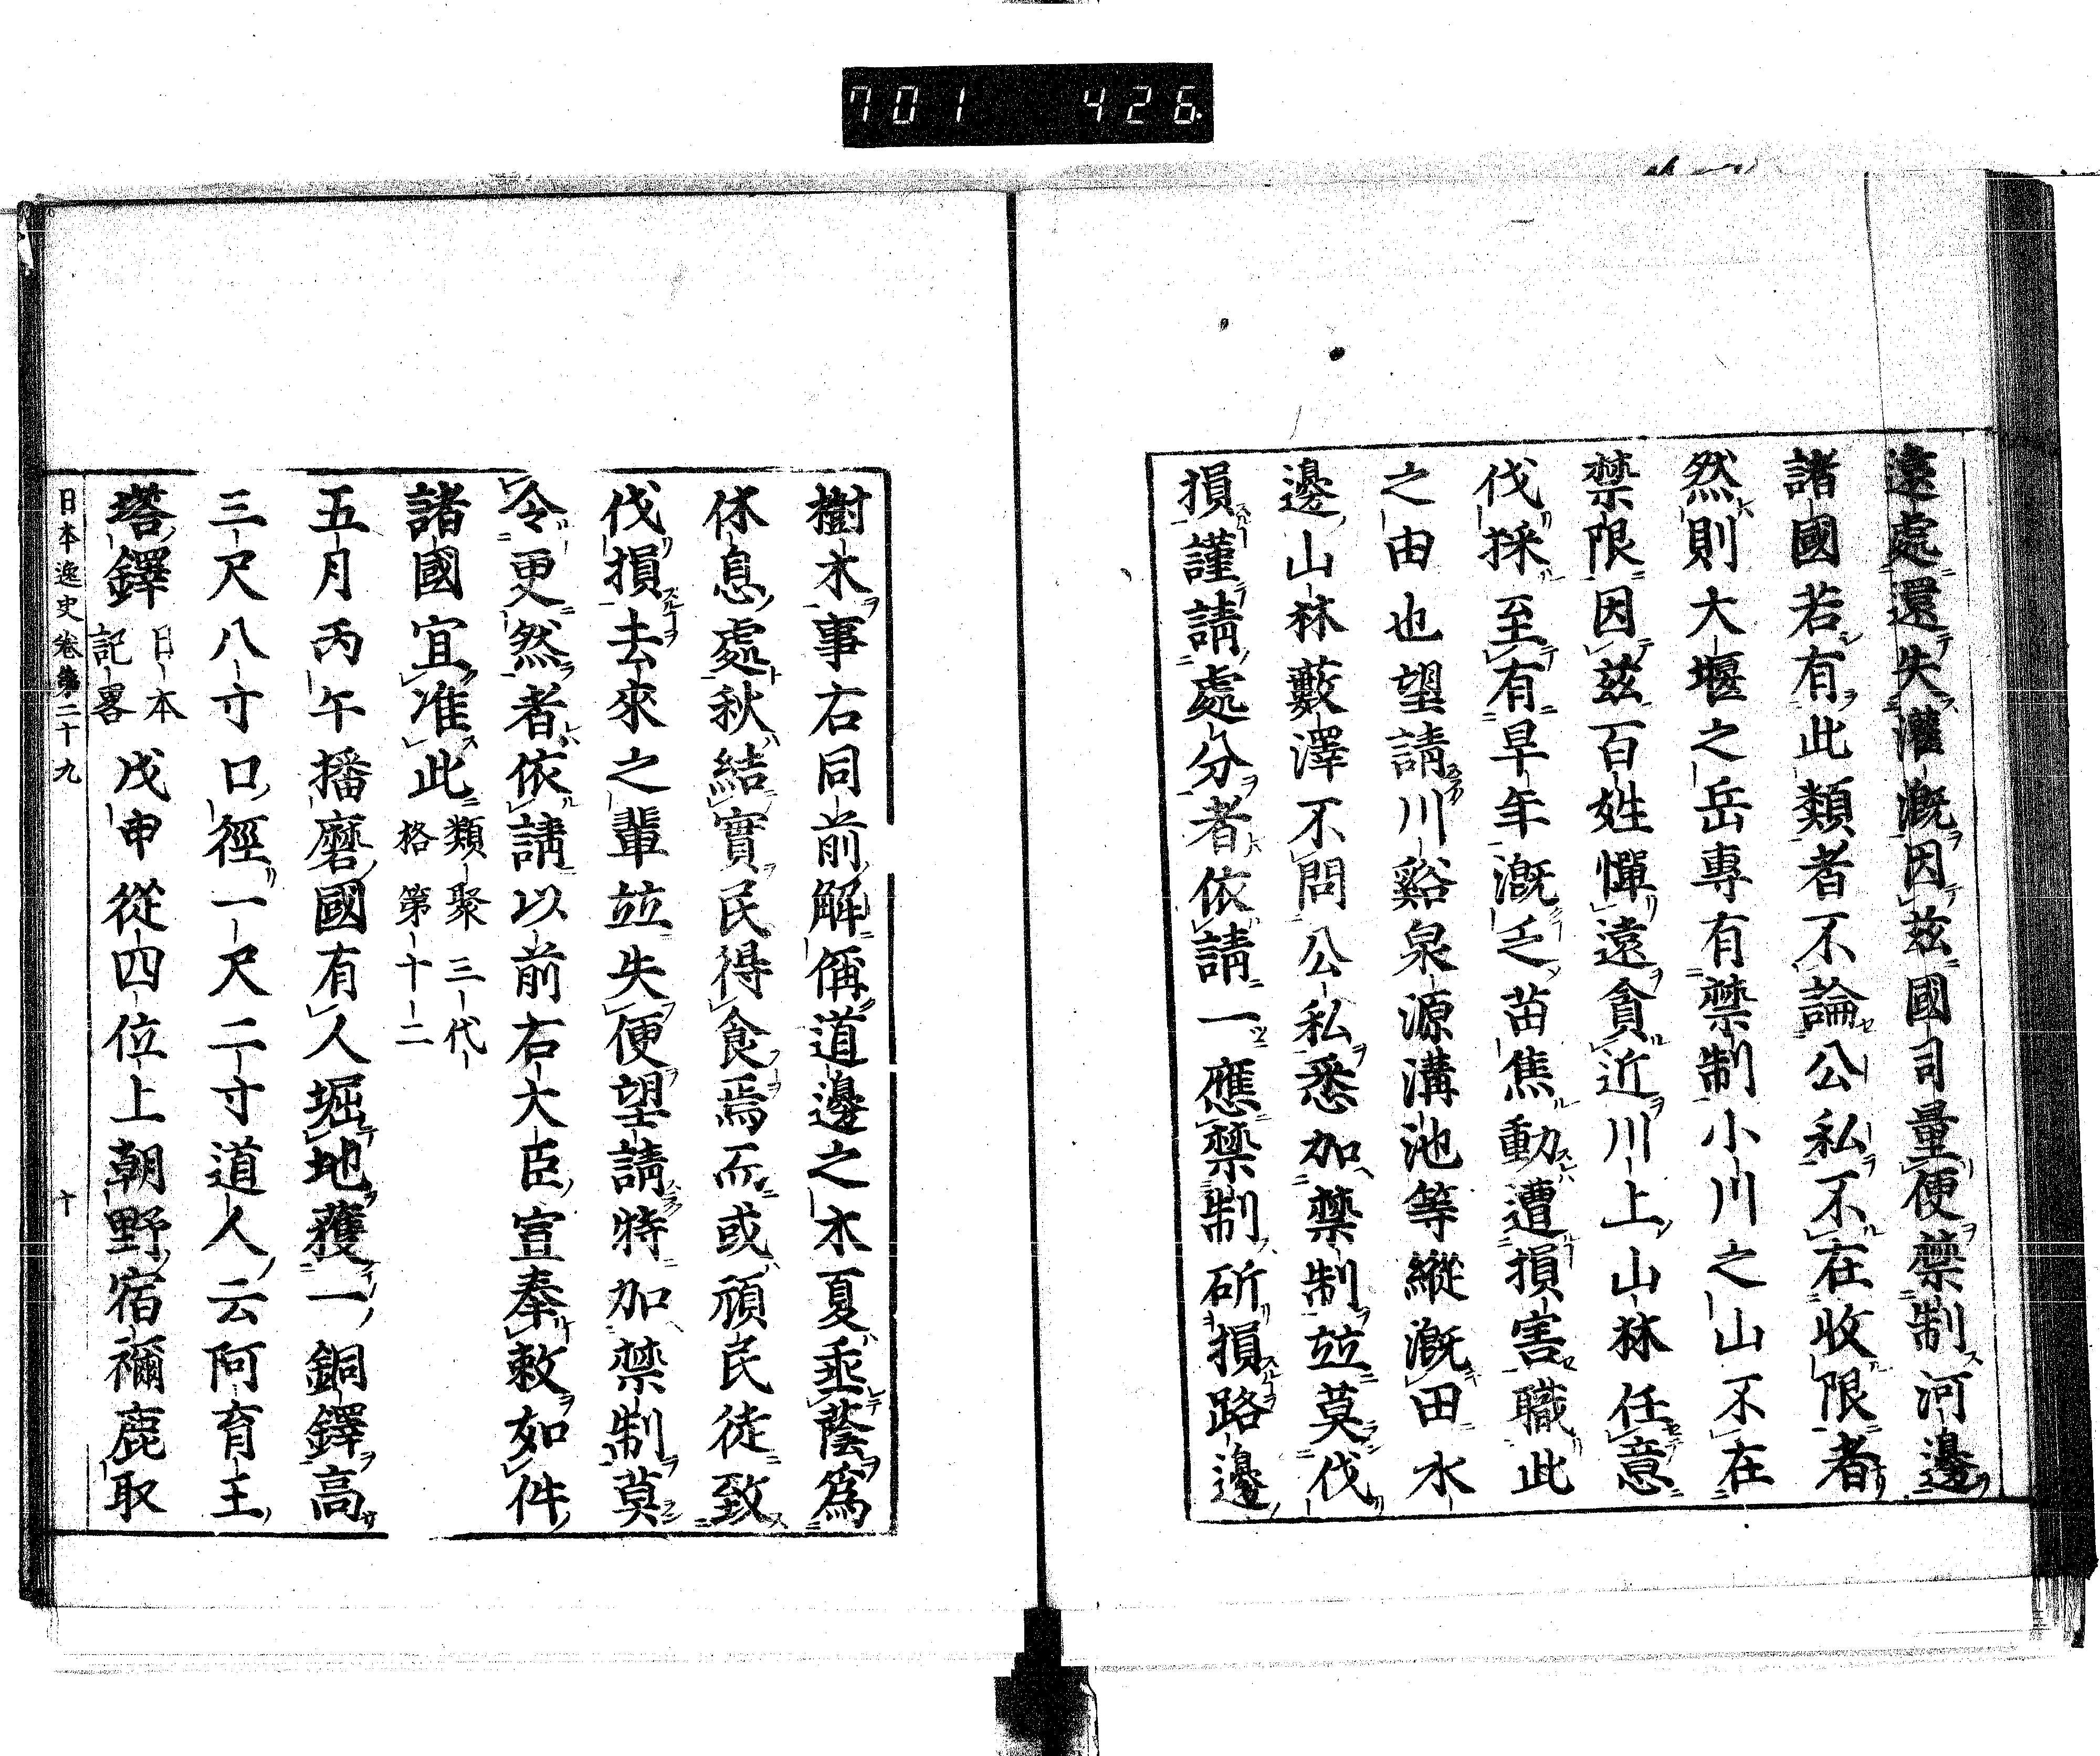 701 426
遠處還失灌漑因玆國司量便禁制河邊
諸國若有此類者不論公私不在收限者
然則大堰之岳專有禁制小川之山不在
禁限因玆百姓憚遠貪近川上山林任意
伐採至有旱年漑乏苗焦動遭損害職此
之由也望請川谿泉源溝池等縱漑田水
邊山林藪澤不問公私悉加禁制竝莫伐
損謹請處分者依請一應禁制斫損路邊
樹木事右同前解偁道邊之木夏垂蔭爲
休息處秋結實民得食焉而或頑民徒致
伐損去來之輩竝失便望請特加禁制莫
令更然者依請以前右大臣宣奉敕如件
諸國宜准此類聚三代
格第十二
五月丙午播磨國有人堀地獲一銅鐸高
三尺八寸口徑一尺二寸道人云阿育王
塔鐸日本
記畧
戊申從四位上朝野宿禰鹿取
日本逸史卷第二十九 十